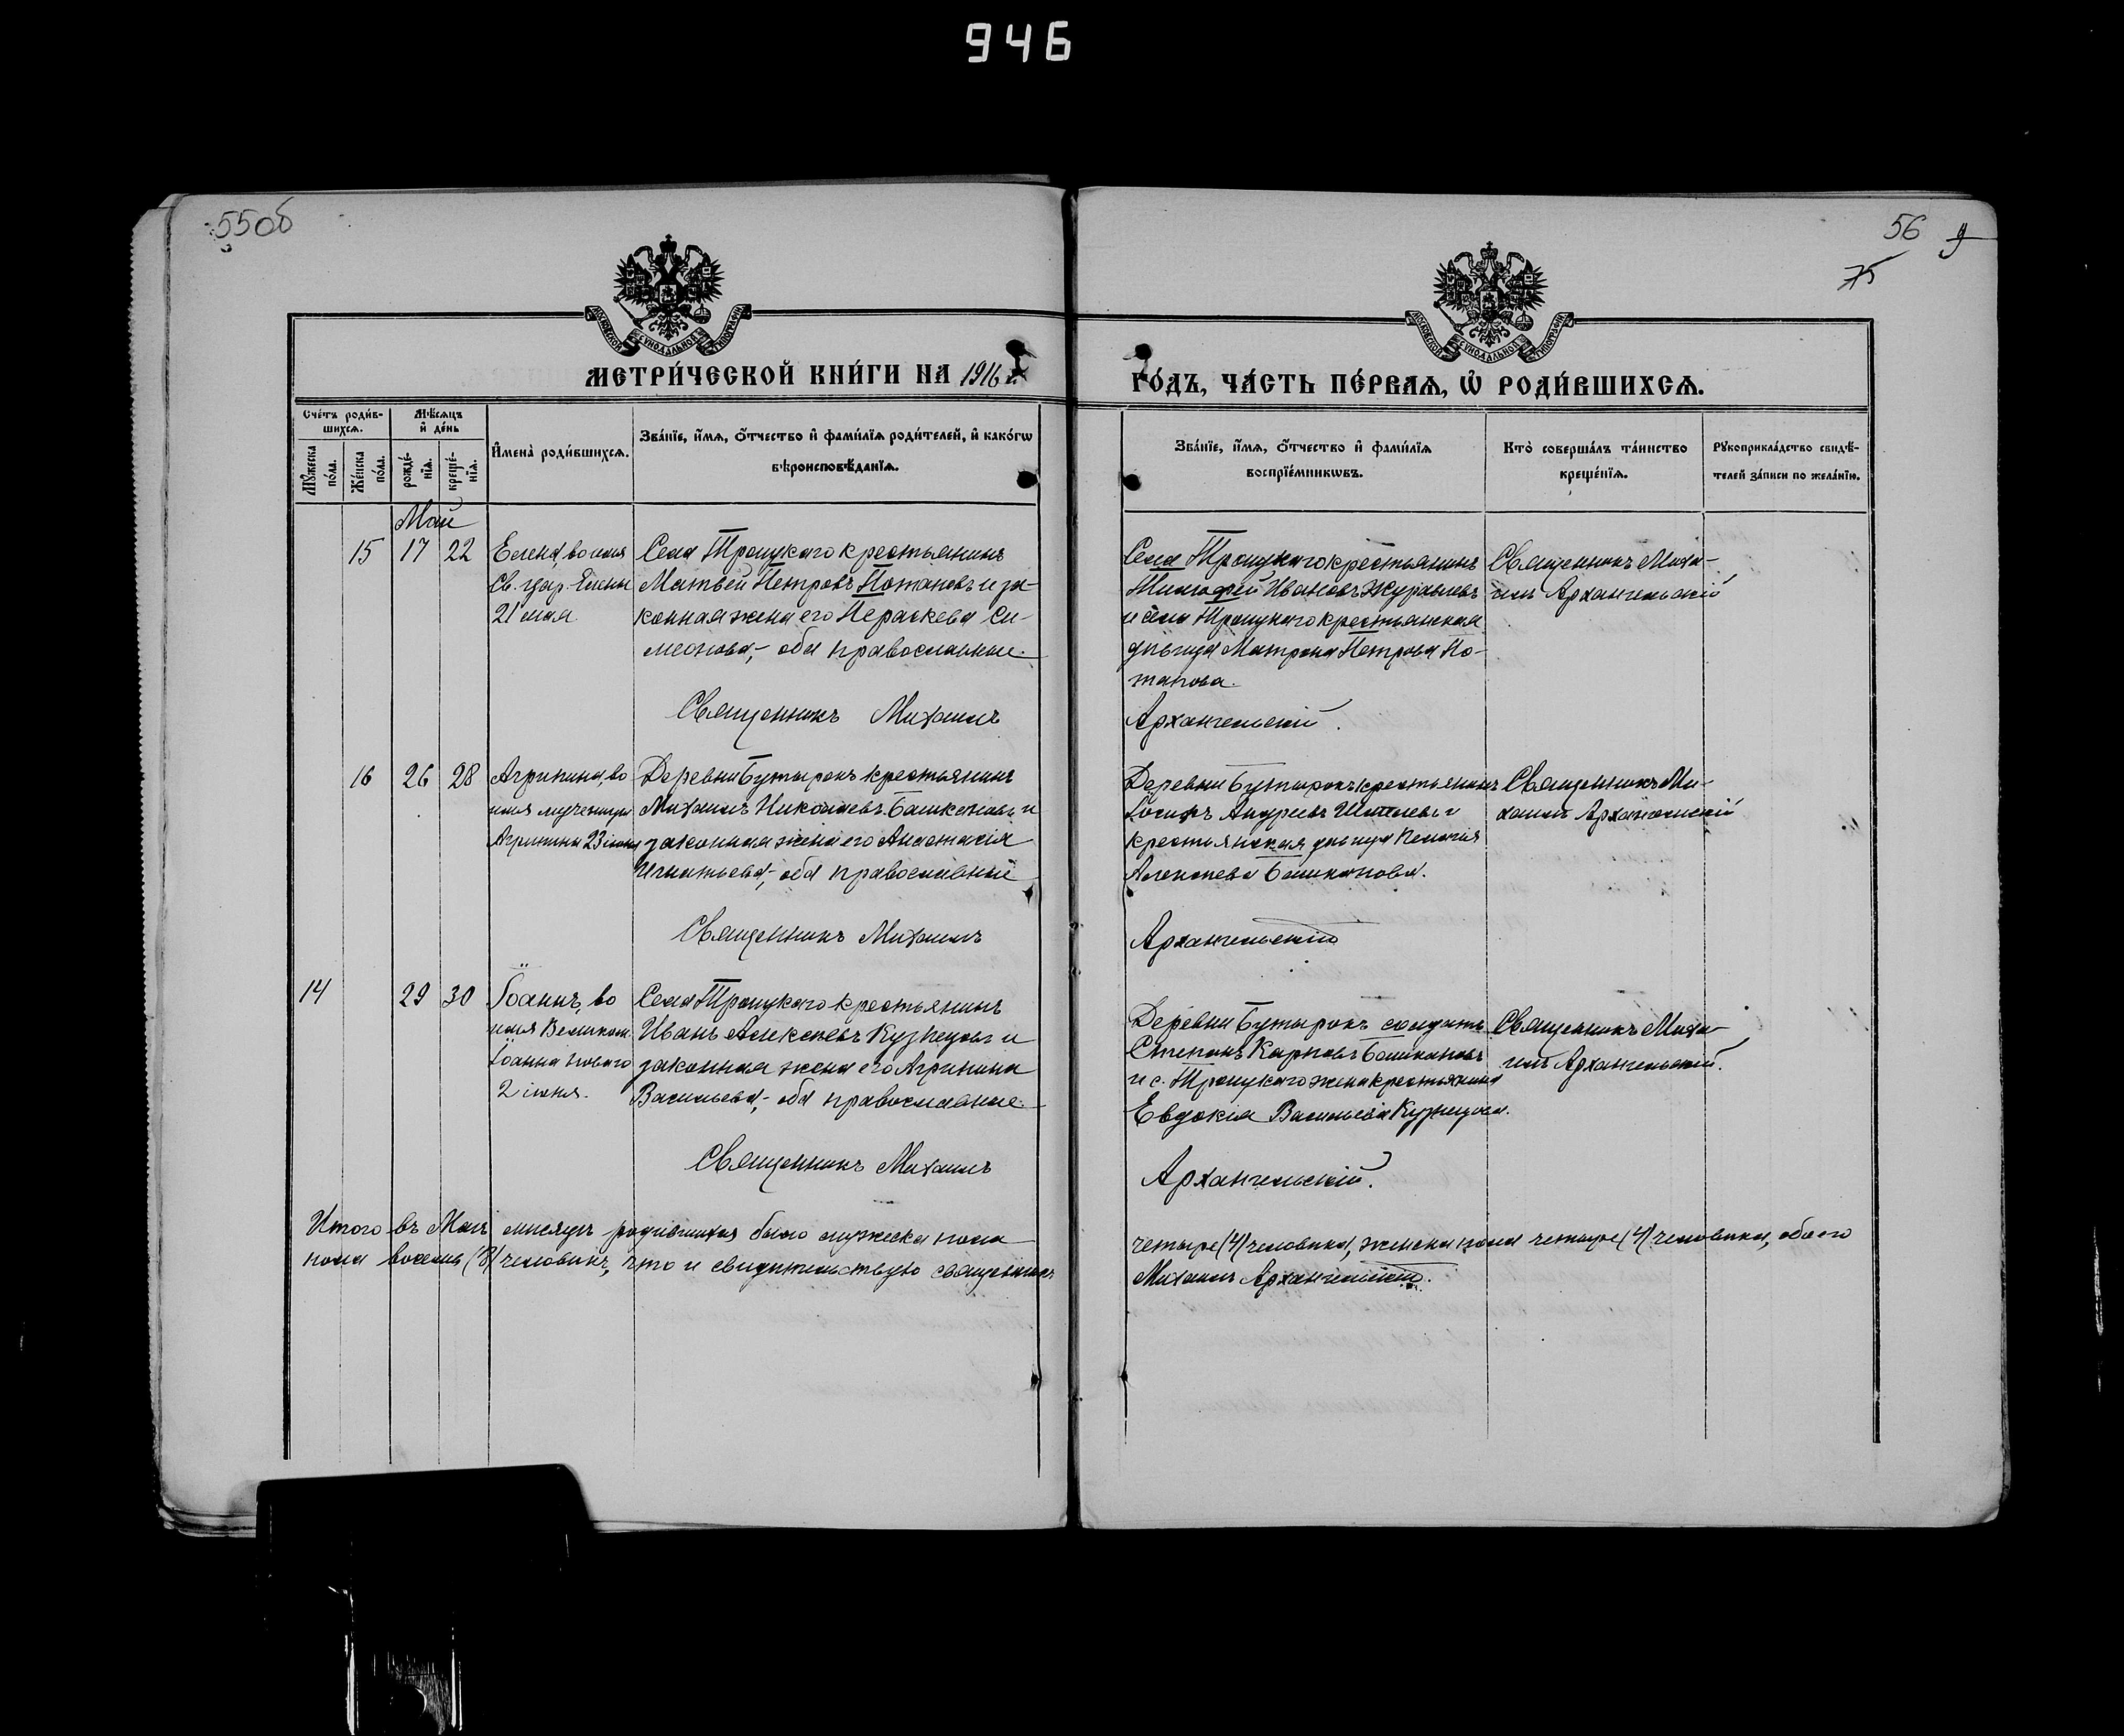 946
55об
56 9
75
МОСКОВСКОЙ СѴНОДАЛЬНОЙ ТИПОГРАФІИ
МОСКОВСКОЙ СѴНОДАЛЬНОЙ ТИПОГРАФІИ
МЕТРИ́ЧЕСКОЙ КНИ́ГИ НА 1916 г.
ГО́ДЪ, ЧА́СТЬ ПЕ́РВАѦ, Ѽ РОДИ́ВШИХСѦ.
Сче́тъ роди́в-
шихсѧ.
Мѣ́сѧцъ
и҆ де́нь
Мꙋ́жеска по́ла.
Же́нска по́ла.
рожде́-
нїѧ.
креще́-
нїѧ.
И҆мена̀ роди́вшихсѧ.
Зва́нїе, и҆́мѧ, ѻ҆́тчество и҆ фами́лїѧ роди́телей, и҆ како́гѡ
вѣроисповѣ́данїѧ.
Зва́нїе, и҆́мѧ, ѻ҆́тчество и҆ фами́лїѧ
воспрїе́мникѡвъ.
Кто̀ соверша́лъ та́инство
креще́нїѧ.
Рꙋкоприкла́дство свидѣ́-
телей за́писи по жела́нїю.
Май
15 17 22
Елена, во имя
Св. цар. Елены
21 мая
Села Троицкаго крестьянинъ
Матвей Петровъ Потаповъ и за-
конная жена его Параскева Си-
меонова,- оба православные.
Священникъ Михаилъ
Села Троицкаго крестьянинъ
Тимофей Ивановъ Журавлевъ
и села Троицкаго крестьянская
дѣвица Матрона Петрова По-
тапова.
Архангельскій.
Священникъ Миха-
илъ Архангельскій
16 26 28
Агрипина, во
имя мученицы
Агрипины 23 іюня
Деревни Бутырокъ крестьянинъ
Михаилъ Николаевъ Башкановъ и
законная жена его Анастасія
Игнатьева,- оба православные
Священникъ Михаилъ
Деревни Бутырокъ крестьянинъ
Іосифъ Андреевъ и
крестьянская дѣвица Пелагія
Алексѣева Башканова.
Архангельскій
Священникъ Ми-
хаилъ Архангельскій
14 29 30
Іоаннъ, во
имя Великом.
Іоанна Новаго
2 іюня.
Села Троицкаго крестьянинъ
Иванъ Алексѣевъ Кузнецовъ и
законная жена его Агрипина
Васильева,- оба православные.
Священникъ Михаилъ
Деревни Бутырокъ солдатъ
Степанъ Карповъ Башкановъ
и с. Троицкаго жена крестьянина
Евдокія Васильева Кузнецова.
Архангельскій.
Священникъ Миха-
илъ Архангельскій.
Итого въ Маѣ мѣсяцѣ родившихся было мужеска пола
четыре (4) человѣка, женска пола четыре (4) человѣка, обоего
пола восемь (8) человѣкъ, что и свидѣтельствую священникъ
Михаилъ Архангельскій.